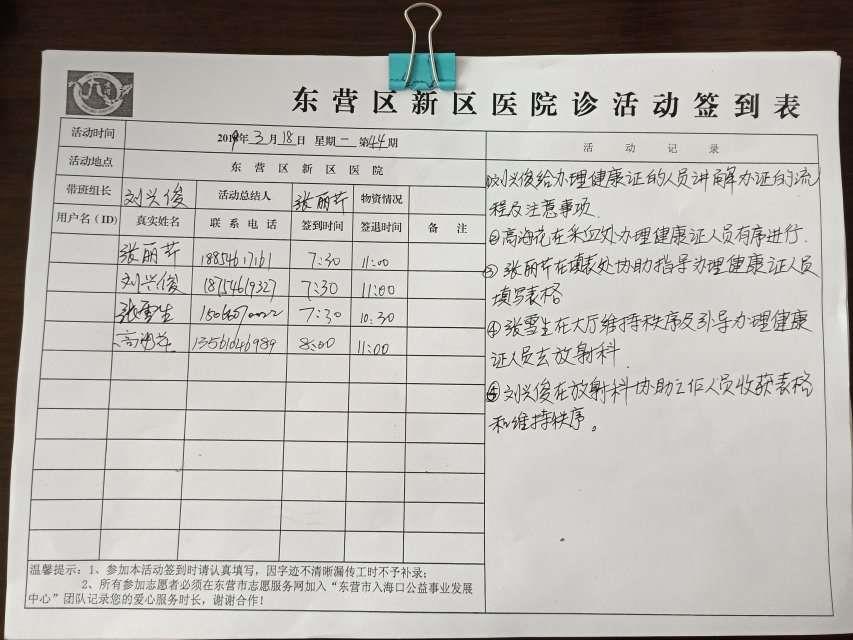 东营区新区医院诊活动签到表
活动时间 2019年3月18日 星期一 第44期
活动地点 东营区新区医院
带班组长 刘兴俊 活动总结人 张丽芹 物资情况
用户名(ID) 真实姓名 联系电话 签到时间 签退时间 备注
张丽芹 18854617161 7:30 11:00
刘兴俊 18754619327 7:30 11:00
张雪生 7:30 10:30
高海花 13561046989 8:00 11:00
温馨提示:1、参加本活动签到时请认真填写,因字迹不清晰漏传工时不予补录;
2、所有参加志愿者必须在东营市志愿服务网加入“东营市入海口公益事业发展
中心”团队记录您的爱心服务时长,谢谢合作!
活动记录
①刘兴俊给办理健康证的人员讲解办证的流
程及注意事项.
②高海花在采血处办理健康证人员有序进行.
③张丽芹在填表处协助指导办理健康证人员
填写表格
④张雪生在大厅维持秩序及引导办理健康
证人员去放射科.
⑤刘兴俊在放射科协助工作人员收获表格
和维持秩序。